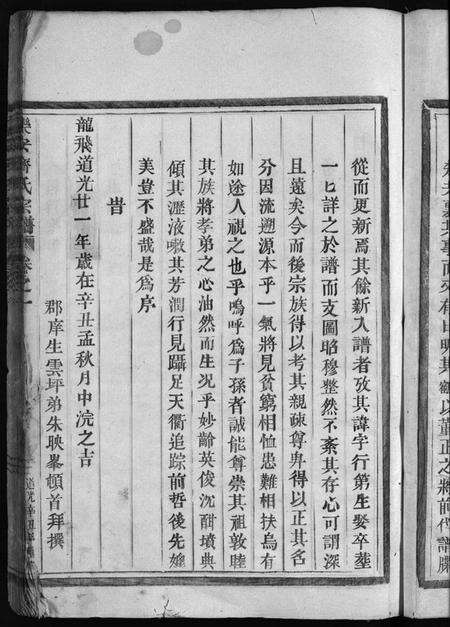 從而更新焉其餘新入譜者攷其諱字行第生娶卒塟
一匕詳之於譜而支圖昭穆整然不紊其存心可謂深
且遠矣今而後宗族得以考其親疎尊卑得以正其名
分因流溯源本乎一氣將見貧窮相恤患難相扶烏有
如途人視之也乎嗚呼為子孫者誠能尊崇其祖敦睦
其族將孝弟之心油然而生况乎妙齡英俊沉酣墳典
傾其瀝液嗽其芳潤行見躡足天衢追踪前哲後先媲
美豈不盛哉是為序
旹
龍飛道光廿一年歲在辛丑孟秋月中浣之吉
郡庠生雲坪弟朱映㟁頓首拜撰
氏宗譜 卷之一